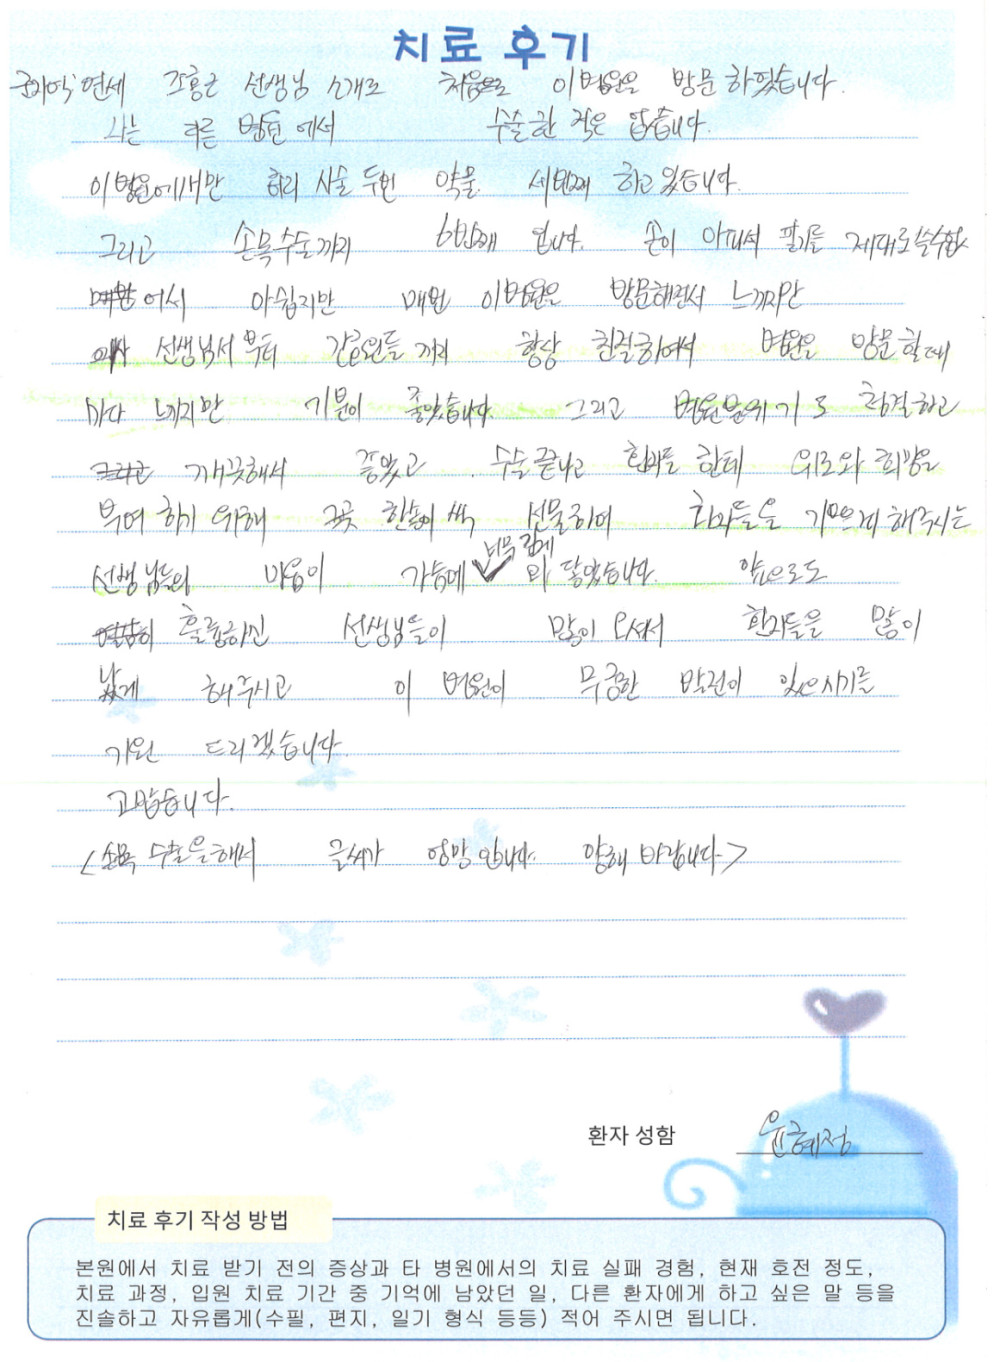 치료 후기
연세 조홍근 선생님 소개로 처음으로 이병원을 방문하였습니다.
나는 다른 병원에서 수술한 적은 없습니다.
이병원에서만 허리 시술 두번 약물 세번째 하고 있습니다.
그리고 손목수술까지 6번째 입니다. 손이 아파서 필기를 제대로 쓸수합
어서 아쉽지만 매번 이병원은 방문해면서 느끼지만
선생님서부터 간호원들 까지 항상 친절하여서 병원을 방문할때
마다 느끼지만 기분이 좋았습니다. 그리고 병원분위기도 청결하고
깨끗해서 좋았고 수술끝나고 환자들 한테 위로와 희망을
부여 하기 위해 장미꽃 한송이 씩 선물하여 환자들을 기쁘게 해주시는
선생님들의 마음이 가슴에 너무 깊게 와 닿았습니다. 앞으로도
훌륭하신 선생님들이 많이 오셔서 환자들을 많이
낫게 해주시고 이 병원이 무궁한 발전이 있으시기를
기원 드리겠습니다.
고맙습니다.
<손목 수술을해서 글씨가 엉망입니다. 양해 바랍니다>
환자 성함 윤혜정
치료 후기 작성 방법
본원에서 치료 받기 전의 증상과 타 병원에서의 치료 실패 경험, 현재 호전 정도,
치료 과정, 입원 치료 기간 중 기억에 남았던 일, 다른 환자에게 하고 싶은 말 등을
진솔하고 자유롭게(수필, 편지, 일기 형식 등등) 적어 주시면 됩니다.